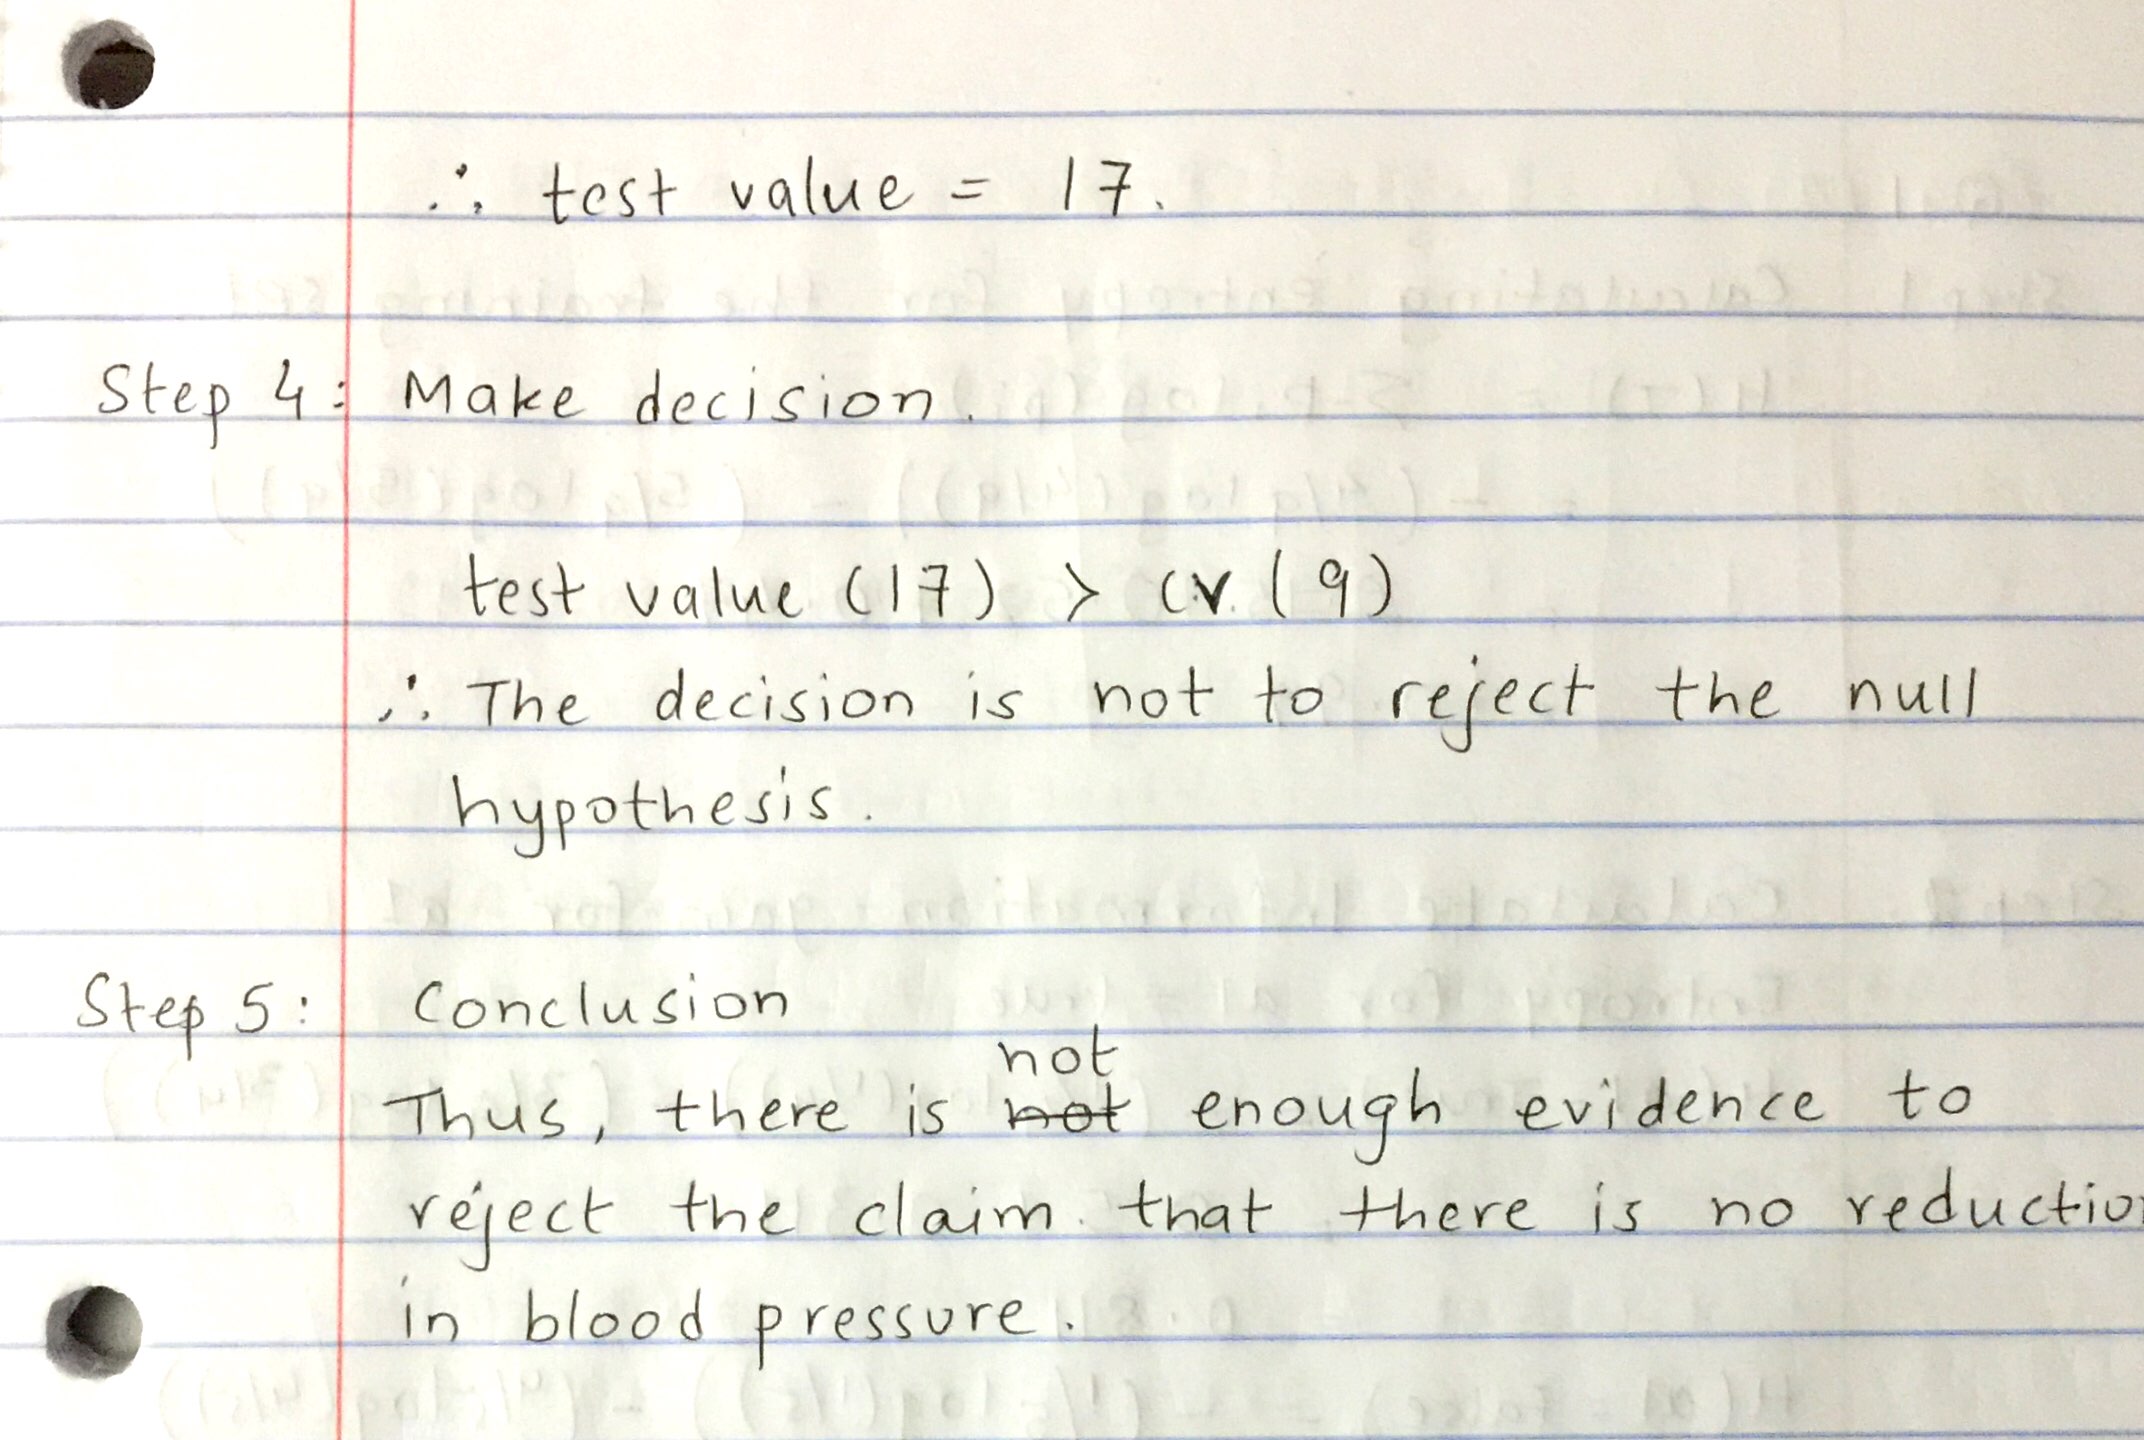 ∴ test value = 17.
Step 4: Make decision.
test value (17) > C.V. (9)
∴ The decision is not to reject the null
hypothesis.
Step 5: Conclusion
not
Thus, there is not enough evidence to
reject the claim that there is no reduction
in blood pressure.